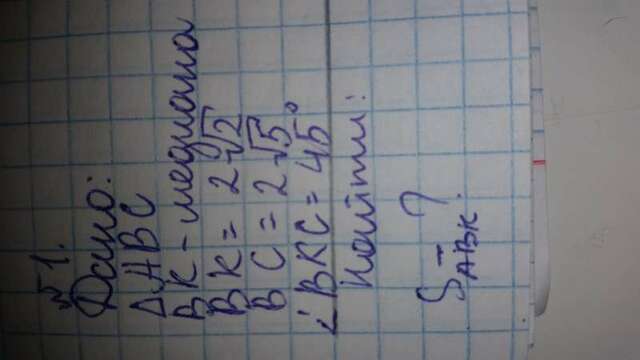 №1.
Дано:
△ABC
BK - медиана
BK = 2√2
BC = 2√5
∠BKC = 45°
Найти:
S_ABK - ?